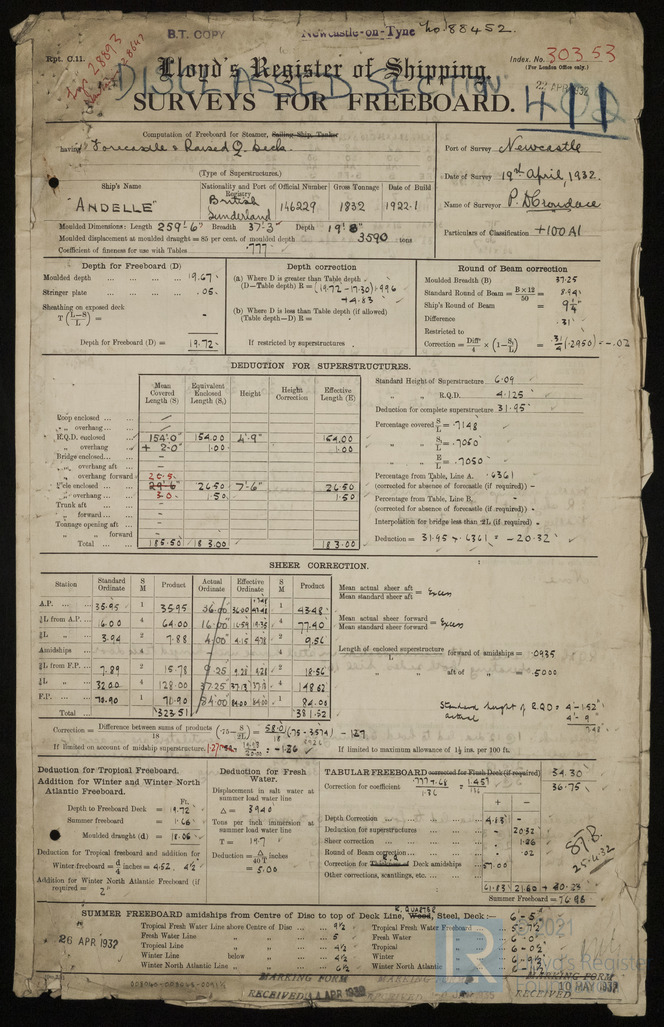 B.T. COPY
Newcastle-on-Tyne
No 88452.
Rpt. C.11.
Index. No. 30353
(For London Office only.)
Lloyd's Register of Shipping.
22 APR 1932
SURVEYS FOR FREEBOARD.
Computation of Freeboard for Steamer, Sailing Ship, Tanker
having Forecastle & Raised Q. Deck
(Type of Superstructures.)
Port of Survey Newcastle
Date of Survey 19th April, 1932.
Name of Surveyor
Particulars of Classification +100 A1
Ship's Name
Nationality and Port of Registry
Official Number
Gross Tonnage
Date of Build
"ANDELLE"
British
Sunderland
146229
1832
1922.1
Moulded Dimensions: Length 259'-6" Breadth 37'-3" Depth 19'-8"
Moulded displacement at moulded draught = 85 per cent. of moulded depth 3590 tons
Coefficient of fineness for use with Tables .777
Depth for Freeboard (D)
Moulded depth 19.67
Stringer plate .05
Sheathing on exposed deck
T (L-S/L) = -
Depth for Freeboard (D) = 19.72
Depth correction
(a) Where D is greater than Table depth
(D—Table depth) R = (19.72 - 17.30) 1.996
+4.83
(b) Where D is less than Table depth (if allowed)
(Table depth—D) R =
If restricted by superstructures
Round of Beam correction
Moulded Breadth (B) 37.25
Standard Round of Beam = B×12/50 = 8.94
Ship's Round of Beam = 9¼"
Difference .31
Restricted to
Correction = Diff/4 × (1-S₁/L) = .31/4 (.2950) = -.02
DEDUCTION FOR SUPERSTRUCTURES.
Mean Covered Length (S)
Equivalent Enclosed Length (S₁)
Height
Height Correction
Effective Length (E)
Poop enclosed
" overhang
R.Q.D. enclosed 154'.0" 154.00 4'-9" 154.00
" overhang + 2'.0" 1.00 1.00
Bridge enclosed -
" overhang aft -
" overhang forward
F'cle enclosed 29'-6" 26.50 7'-6" 26.50
" overhang 3.0 1.50 1.50
Trunk aft -
" forward -
Tonnage opening aft -
" " forward -
Total 185.50 183.00 183.00
Standard Height of Superstructure 6.09
" " R.Q.D. 4.125
Deduction for complete superstructure 31.95
Percentage covered S/L = .7148
" " S₁/L = .7050
" " E/L = .7050
Percentage from Table, Line A. .6361
(corrected for absence of forecastle (if required)) -
Percentage from Table, Line B. -
(corrected for absence of forecastle (if required)) -
Interpolation for bridge less than .2L (if required) -
Deduction = 31.95 × .6361 = -20.32
SHEER CORRECTION.
Station
Standard Ordinate
S M
Product
Actual Ordinate
Effective Ordinate
S M
Product
A.P. 35.95 1 35.95 36.00 36.00 1 43.48
¼L from A.P. 16.00 4 64.00 16.00 4 77.40
¼L " 3.94 2 7.88 4.00 2 9.56
Amidships - 4 - - 4 -
¼L from F.P. 7.89 2 15.78 9.25 9.28 2 18.56
¼L " 32.00 4 128.00 37.25 4 148.62
F.P. 70.90 1 70.90 84.00 84.00 1 84.00
Total 323.51 381.52
Mean actual sheer aft / Mean standard sheer aft = Excess
Mean actual sheer forward / Mean standard sheer forward = Excess
Length of enclosed superstructure / L forward of amidships = .0935
" aft of " = .5000
Standard height of R.Q.D = 4-1.52"
actual 4'-9"
7.48
Correction = Difference between sums of products / 18 (.75 - S/2L) = 58.01/18 (.75-.3574) = -1.27
If limited on account of midship superstructure. = -1.26
If limited to maximum allowance of 1½ ins. per 100 ft.
Deduction for Tropical Freeboard.
Addition for Winter and Winter North Atlantic Freeboard.
Ft.
Depth to Freeboard Deck = 19.72
Summer freeboard = 1.66
Moulded draught (d) = 18.06
Deduction for Tropical freeboard and addition for
Winter freeboard = d/4 inches = 4.52 4½"
Addition for Winter North Atlantic Freeboard (if
required) = 2"
Deduction for Fresh Water.
Displacement in salt water at summer load water line
Δ = 3940
Tons per inch immersion at summer load water line
T = 19.7
Deduction = Δ/40T inches
= 5.00
TABULAR FREEBOARD corrected for Flush Deck (if required) 34.30
Correction for coefficient .777+.68/1.36 = 1.457/1.36 36.75
+ -
Depth Correction 4.83 -
Deduction for superstructures - 20.32
Sheer correction - 1.26
Round of Beam correction - .02
Correction for R.Q. Deck amidships 57.00
Other corrections, scantlings, etc.
61.83 21.60 + 40.23
Summer Freeboard = 76.98
25.4.32
SUMMER FREEBOARD amidships from Centre of Disc to top of Deck Line, Wood, Steel, Deck:—
R. QUARTER
6 - 5
Tropical Fresh Water Line above Centre of Disc 9½
Fresh Water Line " " 5
Tropical Line " " 4½
Winter Line below " " 4½
Winter North Atlantic Line " " 6½
Tropical Fresh Water Freeboard 5-7½
Fresh Water " 6-0
Tropical " 6-0½
Winter " 6-9½
Winter North Atlantic "
26 APR 1932
© 2021
LR
Lloyd's Register
Foundation
MARKING FORM
RECEIVED
MARKING FORM
10 MAY 1932
RECEIVED